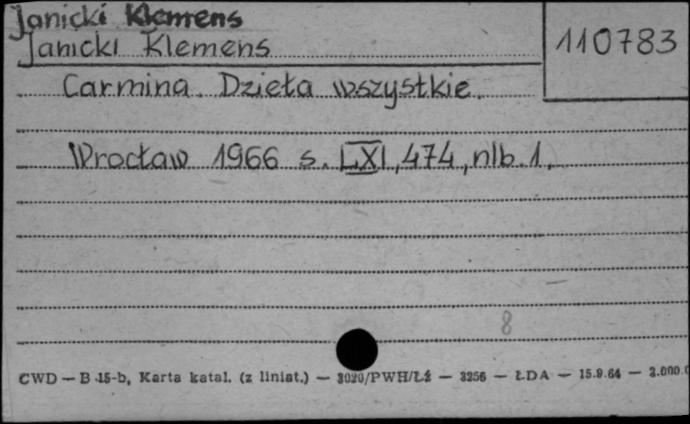 Janicki Klemens
Janicki Klemens
110783
Carmina. Dzieła wszystkie.
Wrocław 1966 s. LXI, 474, nlb. 1.
8
CWD — B-15-b, Karta katal. (z liniat.) — 3020/PWH/Łż — 3256 — ŁDA — 15.9.64 — 2.000.0